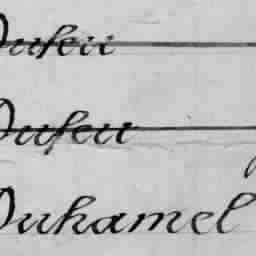 Dufeu
Dufeu
Duhamel